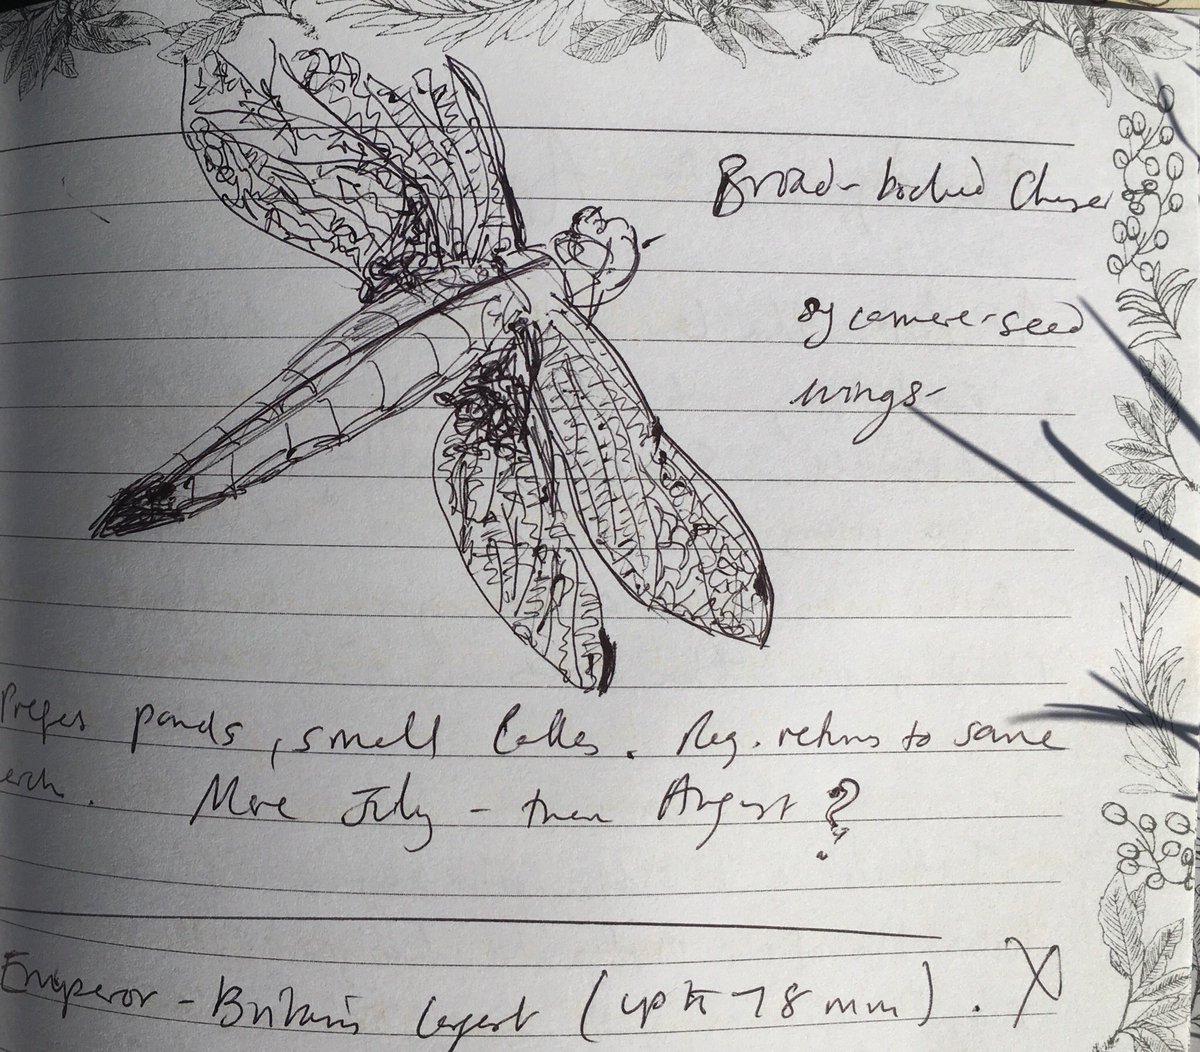 Broad-bodied Chaser
sycamore-seed
wings-
Prefers ponds, small lakes. Reg. returns to same
erch. More July - then August?
Emperor - Britain's largest (up to 78mm). X